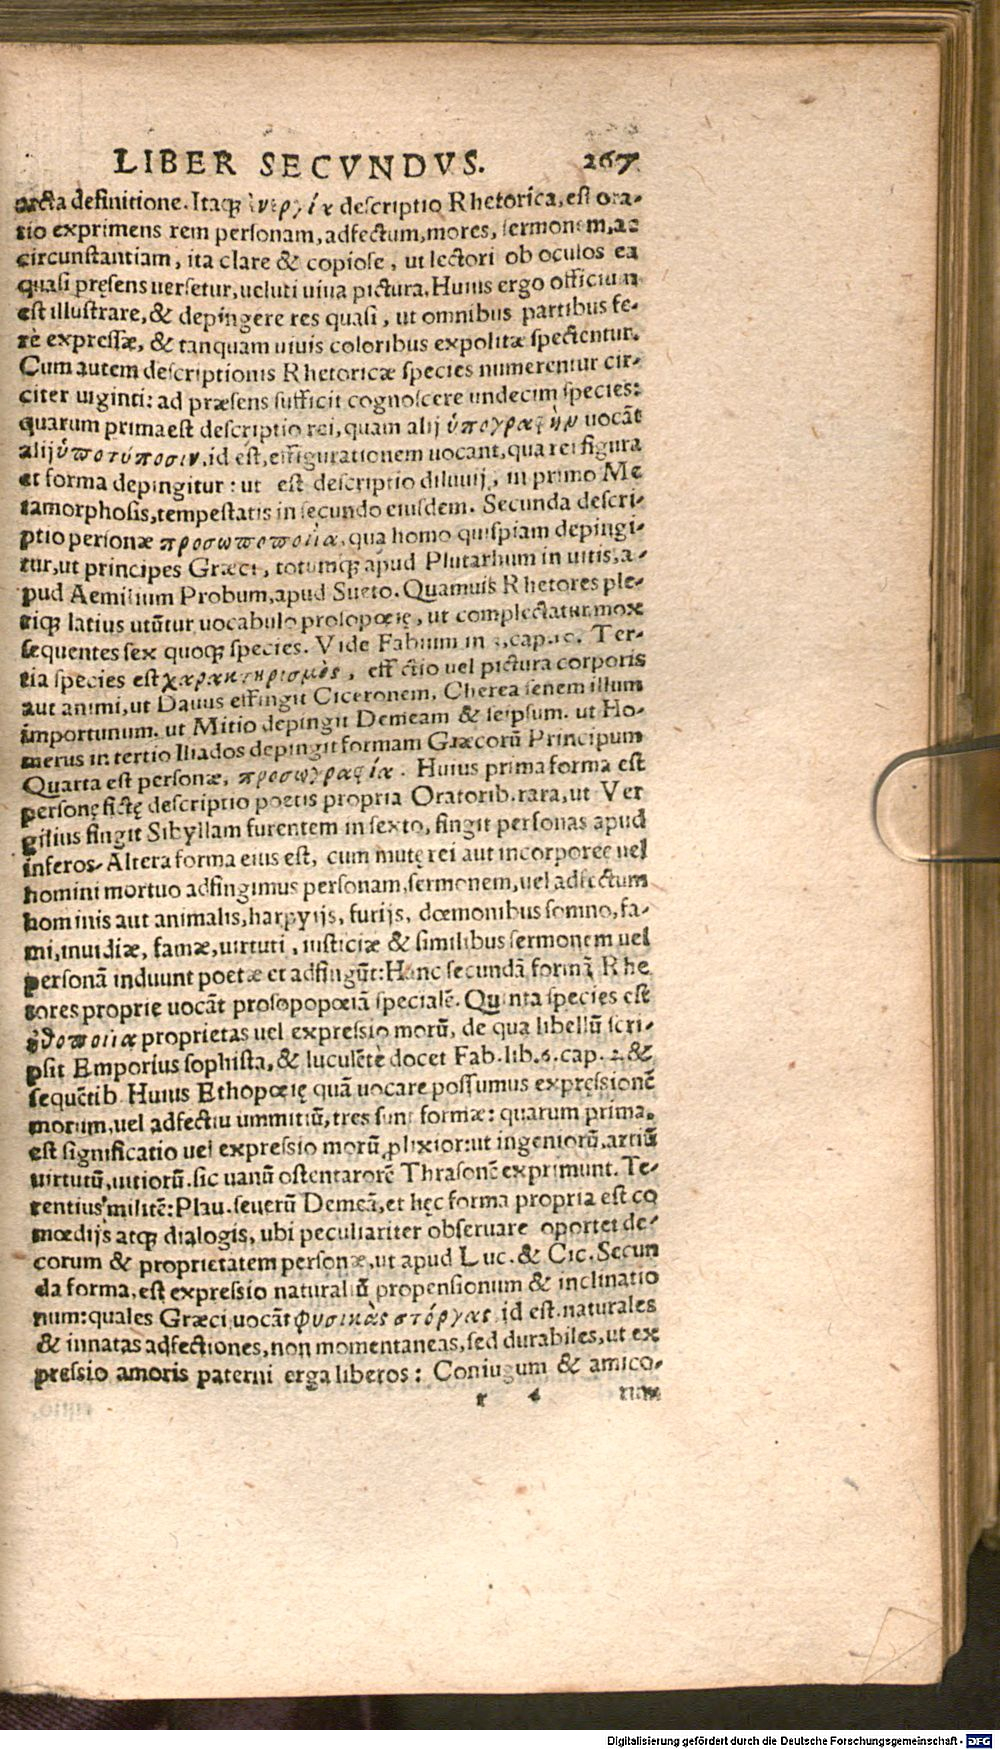 LIBER SECVNDVS. 267
arcta definitione. Itaqꝫ ἐνεργία descriptio Rhetorica, est ora-
tio exprimens rem personam, adfectum, mores, sermonem, ac
circunstantiam, ita clare & copiose, ut lectori ob oculos ea
quasi pręsens uersetur, ueluti uiua pictura. Huius ergo officium
est illustrare, & depingere res quasi, ut omnibus partibus fe-
rè expressæ, & tanquam uiuis coloribus expolitæ spectentur.
Cum autem descriptionis Rhetoricæ species numerentur cir-
citer uiginti: ad præsens sufficit cognoscere undecim species:
quarum prima est descriptio rei, quam alij ὑπογραφὴν uocāt
alij ὑποτύποσιν, id est, effigurationem uocant, qua rei figura
et forma depingitur: ut est descriptio diluuij, in primo Me
tamorphosis, tempestatis in secundo eiusdem. Secunda descri-
ptio personæ προσωποποιία, qua homo quispiam depingi-
tur, ut principes Græci, totumqꝫ apud Plutarhum in uitis, a-
pud Aemilium Probum, apud Sueto. Quamuis Rhetores ple-
riqꝫ latius utūtur uocabulo prosopœię, ut complectatur mox
sequentes sex quoqꝫ species. Vide Fabium in cap. Ter-
tia species est χαρακτηρισμὸς, effictio uel pictura corporis
aut animi, ut Dauus effingit Ciceronem, Cherea senem illum
importunum. ut Mitio depingit Demeam & seipsum. ut Ho-
merus in tertio Iliados depingit formam Græcorū Principum
Quarta est personæ, προσωγραφία. Huius prima forma est
personę fictę descriptio poetis propria Oratorib. rara, ut Ver
gilius fingit Sibyllam furentem in sexto, fingit personas apud
inferos. Altera forma eius est, cum mutę rei aut incorporeę uel
homini mortuo adfingimus personam, sermonem, uel adfectum
hominis aut animalis, harpyijs, furijs, dœmonibus somno, fa-
mi, inuidiæ, famæ, uirtuti, iusticiæ & similibus sermonem uel
personā induunt poetæ et adfingūt: Hanc secundā formā Rhe
tores proprie uocāt prosopopœiā specialē. Quinta species est
ἠθοποιία proprietas uel expressio morū, de qua libellū scri-
psit Emporius sophista, & luculētè docet Fab. lib. 6. cap. 2. &
sequētib. Huius Ethopœię quā uocare possumus expręssionē
morum, uel adfectiū mmitiū, tres sunt formæ: quarum prima
est significatio uel expressio morū plixior: ut ingeniorū, artiū
uirtutū, uitiorū. sic uanū ostentarorē Thrasonē exprimunt. Te-
rentius militē: Plau. seuerū Demeā, et hęc forma propria est co
mœdijs atqꝫ dialogis, ubi peculiariter obseruare oportet de-
corum & proprietatem personæ, ut apud Luc. & Cic. Secun
da forma, est expressio naturaliū propensionum & inclinatio
num: quales Græci uocāt φυσικὰς στόργας id est, naturales
& innatas adfectiones, non momentaneas, sed durabiles, ut ex
pressio amoris paterni erga liberos: Coniugum & amico-
r 4 rum
Digitalisierung gefördert durch die Deutsche Forschungsgemeinschaft - DFG